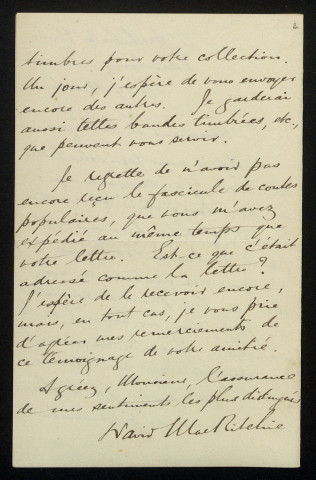 2
timbres pour votre collection.
Un jour, j'espère de vous envoyer
encore des autres. Je garderai
aussi telles bandes timbrées, etc.,
que peuvent vous servir.
Je regrette de n'avoir pas
encore reçu le fascicule de contes
populaires, que vous m'avez
expédié au même temps que
votre lettre. Est-ce que c'était
adressé comme la lettre?
J'espère de le recevoir encore,
mais, en tout cas, je vous prie
d'agréer mes remerciements de
ce témoignage de votre amitié.
Agréez, Monsieur, l'assurance
de mes sentiments les plus distingués
David MacRitchie